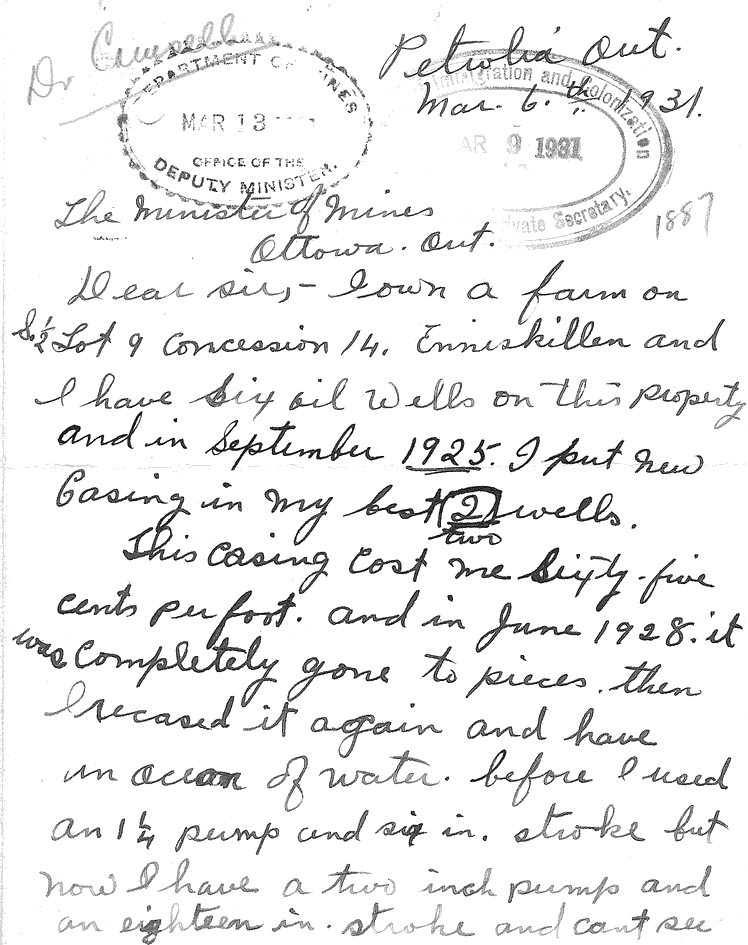 Dr Campbell
Petrolia Ont.
Mar. 6.th 1931.
DEPARTMENT OF MINES
MAR 13
OFFICE OF THE
DEPUTY MINISTER.
Immigration and Colonization
AR 9 1931
Private Secretary.
1887
The Minister of Mines
Ottowa. Ont.
Dear sir,- I own a farm on
S.½ Lot 9 Concession 14. Enniskillen and
I have six oil wells on this property
and in September 1925. I put new
Casing in my best (2) wells.
two
This casing cost me sixty-five
cents per foot. and in June 1928. it
was completely gone to pieces. then
I recased it again and have
an ocean of water. before I used
an 1¼ pump and six in. stroke but
now I have a two inch pump and
an eighteen in. stroke and cant see